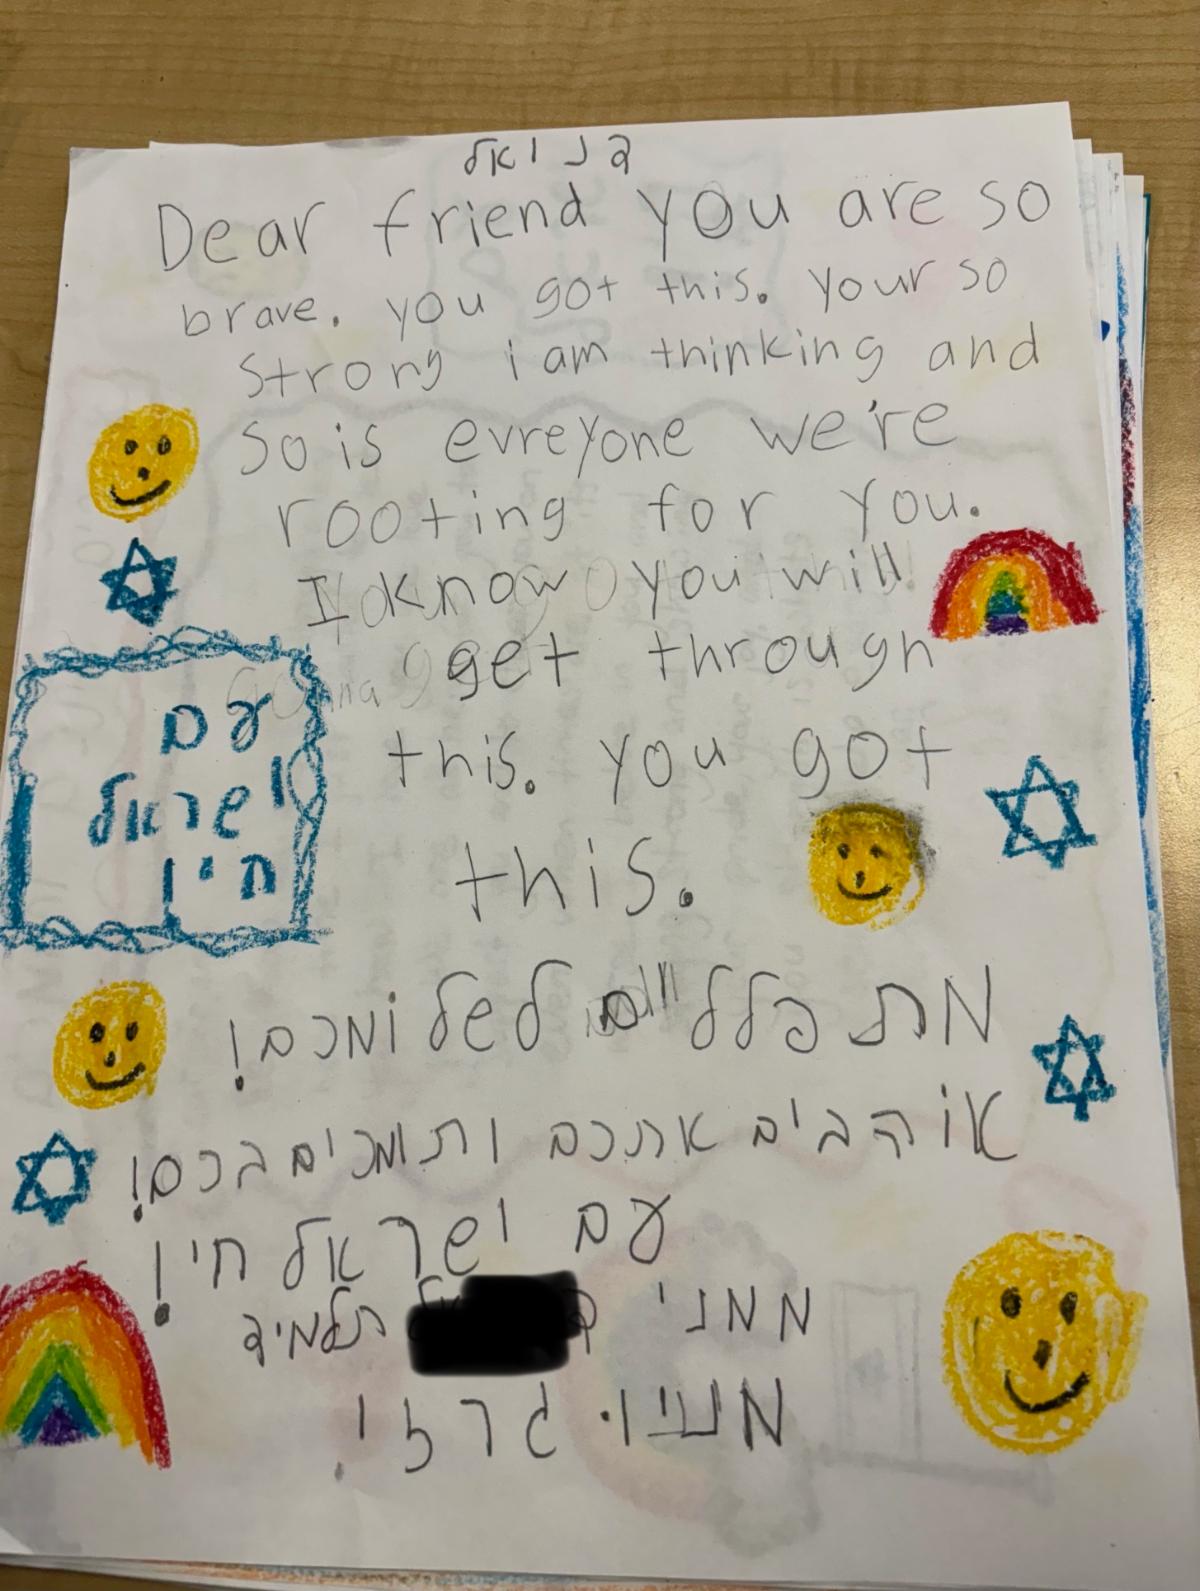 דניאל
Dear friend you are so
brave. you got this. your so
strong i am thinking and
so is evreyone we're
rooting for you.
I know you will
get through
this. you got
this.
עם
ישראל
חי!
מתפללים לשלומכם!
אוהבים אתכם ותומכים בכם!
עם ישראל חי!
ממני תלמיד
מניו גרזי.